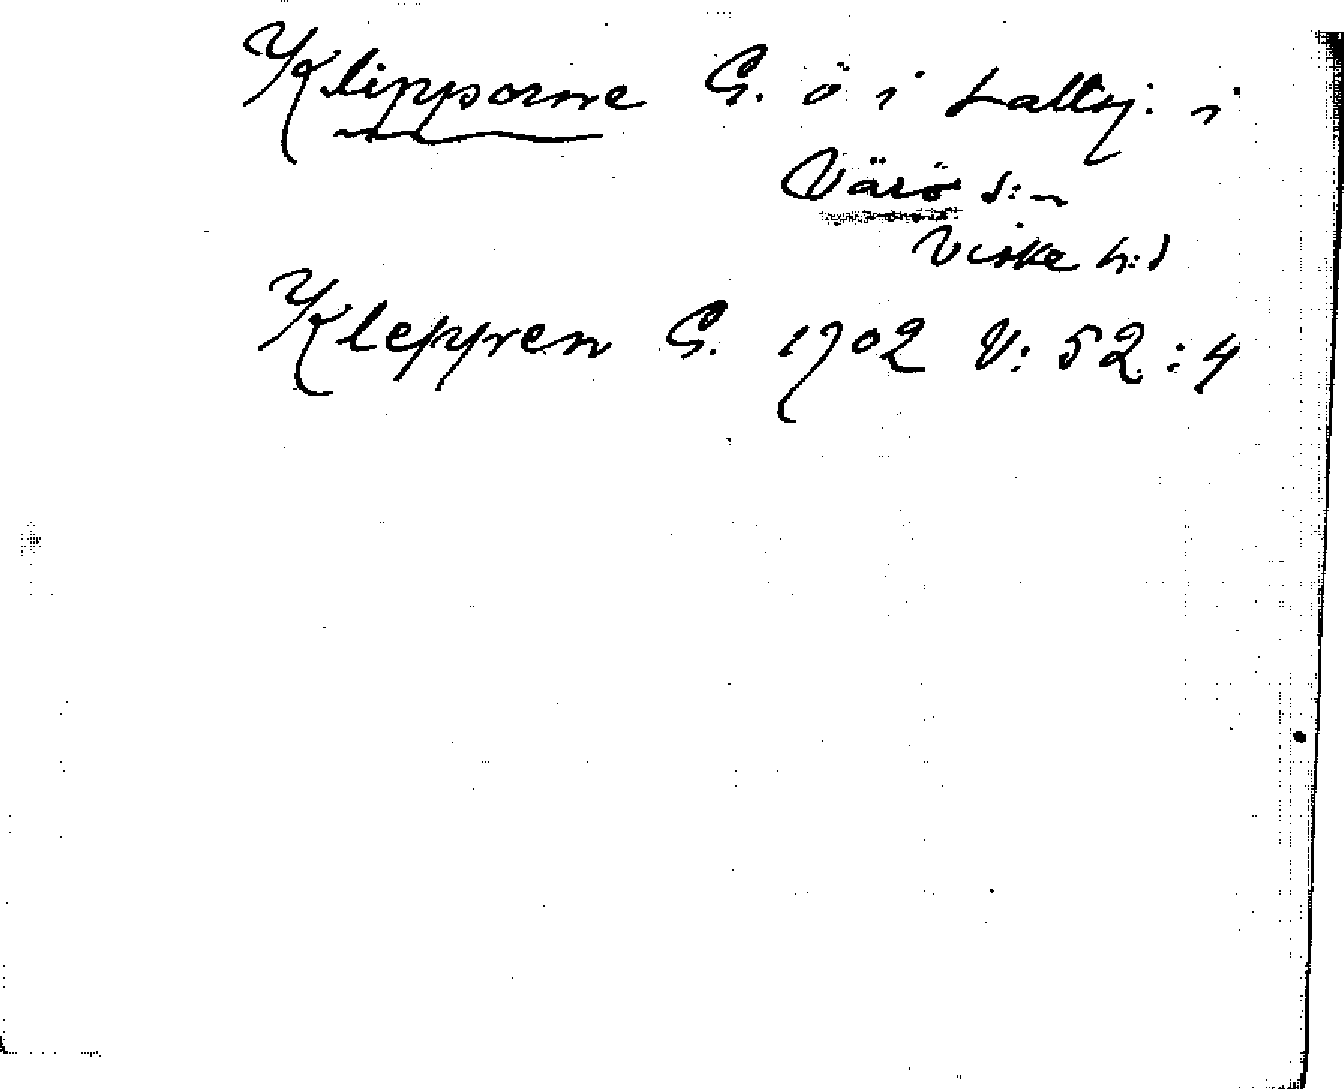 Klipporne G. ö i Saltsj: i
Värö s:n
Viske h:d
Kleppren G. 1902 V: 52 : 4